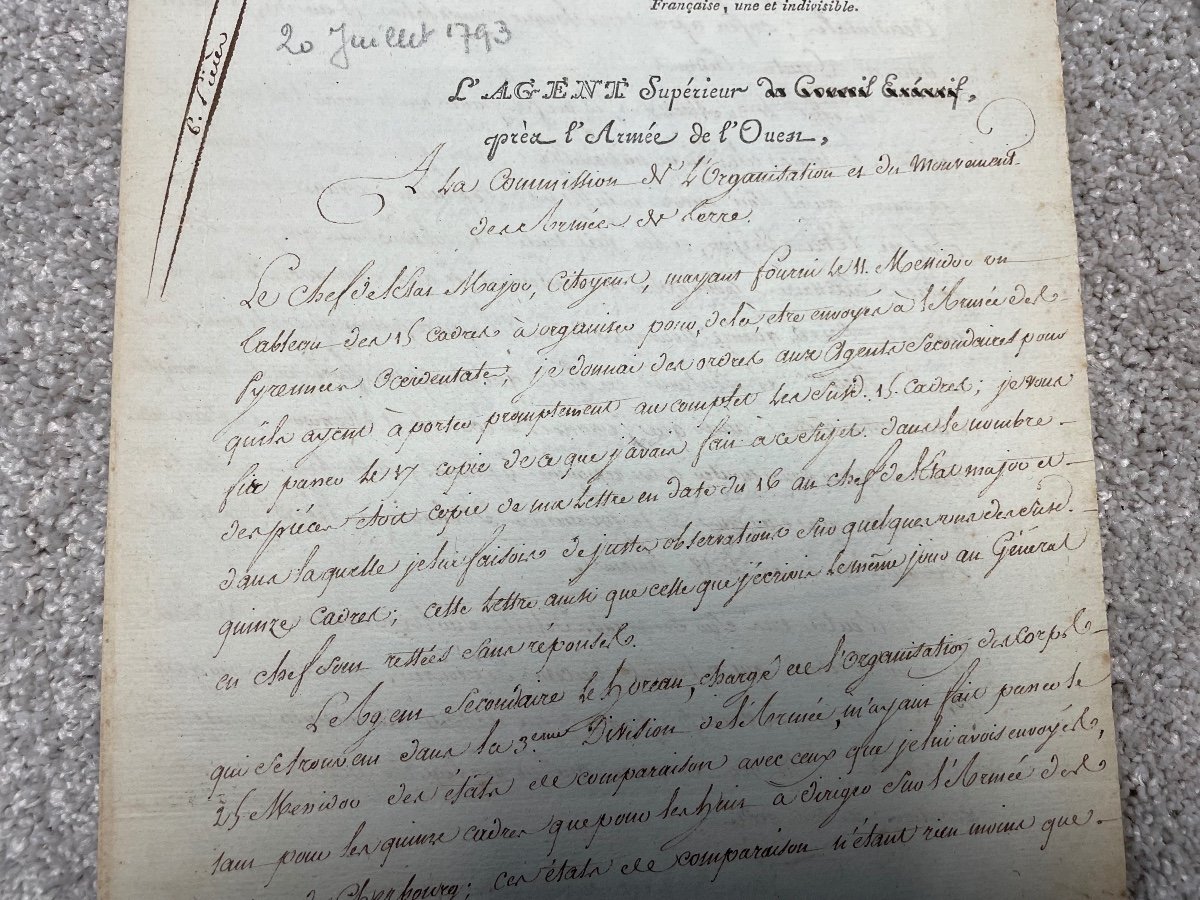 Française, une et indivisible.
20 Juillet 1793
L'AGENT Supérieur du Conseil Exécutif,
près l'Armée de l'Ouest,
A La Commission De L'Organisation et du Mouvement
des Armées de terre.
Le Chef de l'Etat Major, Citoyens, m'ayant fourni le 11. Messidor un
tableau des 15 cadres à organiser pour, delà être envoyés à l'Armée des
Pyrennées Occidentales, je donnai des ordres aux Agents Secondaires pour
qu'ils ayent à porter promptement au complet les susd. 15. cadres; je vous
fis passer le 17 copie de ce que j'avais fait à ce sujet. dans le nombre
des piéces étoit copie de ma Lettre en date du 16 au chef de l'Etat major et
dans laquelle je lui faisois de justes observations sur quelques uns des susd.
quinze cadres; cette Lettre ainsi que celle que j'écrivis le même jour au Général
en chef sont restées sans réponses.
L'Agent Secondaire chargé de l'Organisation des corps
qui se trouvent dans la 3.eme Division de l'Armée, m'ayant fait passer le
25 Messidor des états de comparaison avec ceux que je lui avois envoyés,
tant pour les quinze cadres que pour les huit à diriger sur l'Armée des
de Cherbourg; ces états de comparaison n'étant rien moins que